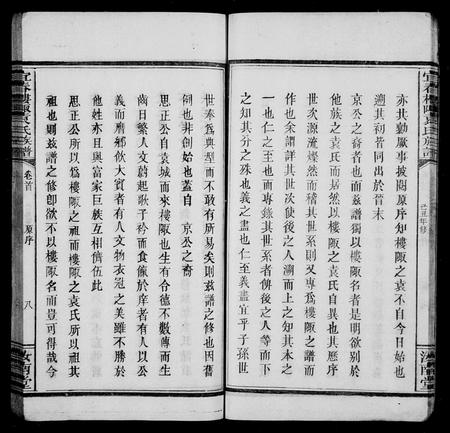 亦其勷厥事披閱原序知樓陬之袁不自今日始也
遡其初昔同出於晉末
京公之裔者也而茲譜獨以樓陬名者是明欲别於
他族之袁氏而居然以樓陬之袁氏自異也其歷序
世次源流燦然而稽其世系則又專爲樓陬之譜而
作也余謂詳其世次使後之人溯而上之知其本之
一也仁也而專錄其世系者俾後之人等而下
之知其分之殊也義之盡也仁至義盡宜乎子孫世
世奉爲典型而不敢有所易矣則茲譜之修也因舊
例也非創始也蓋自 京公之裔
思正公自袁城而來樓陬也生有合德不數傳而生
齒日繁人文蔚起歌子衿而食餼於庠者有人以公
義而膺鄉飲大賓者有人文物衣冠之美雖不勝於
他姓亦且與富家巨族互相儕伍此
思正公所以爲樓陬之祖而樓陬之袁氏所以祖其
祖也則茲欲與譜之修卽欲不以樓陬名而豈可得哉今
宜春樓陬袁氏族譜
卷首
原序
八
汝南堂